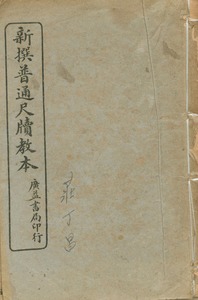 新撰普通尺牘教本
廣益書局印行
莊丁